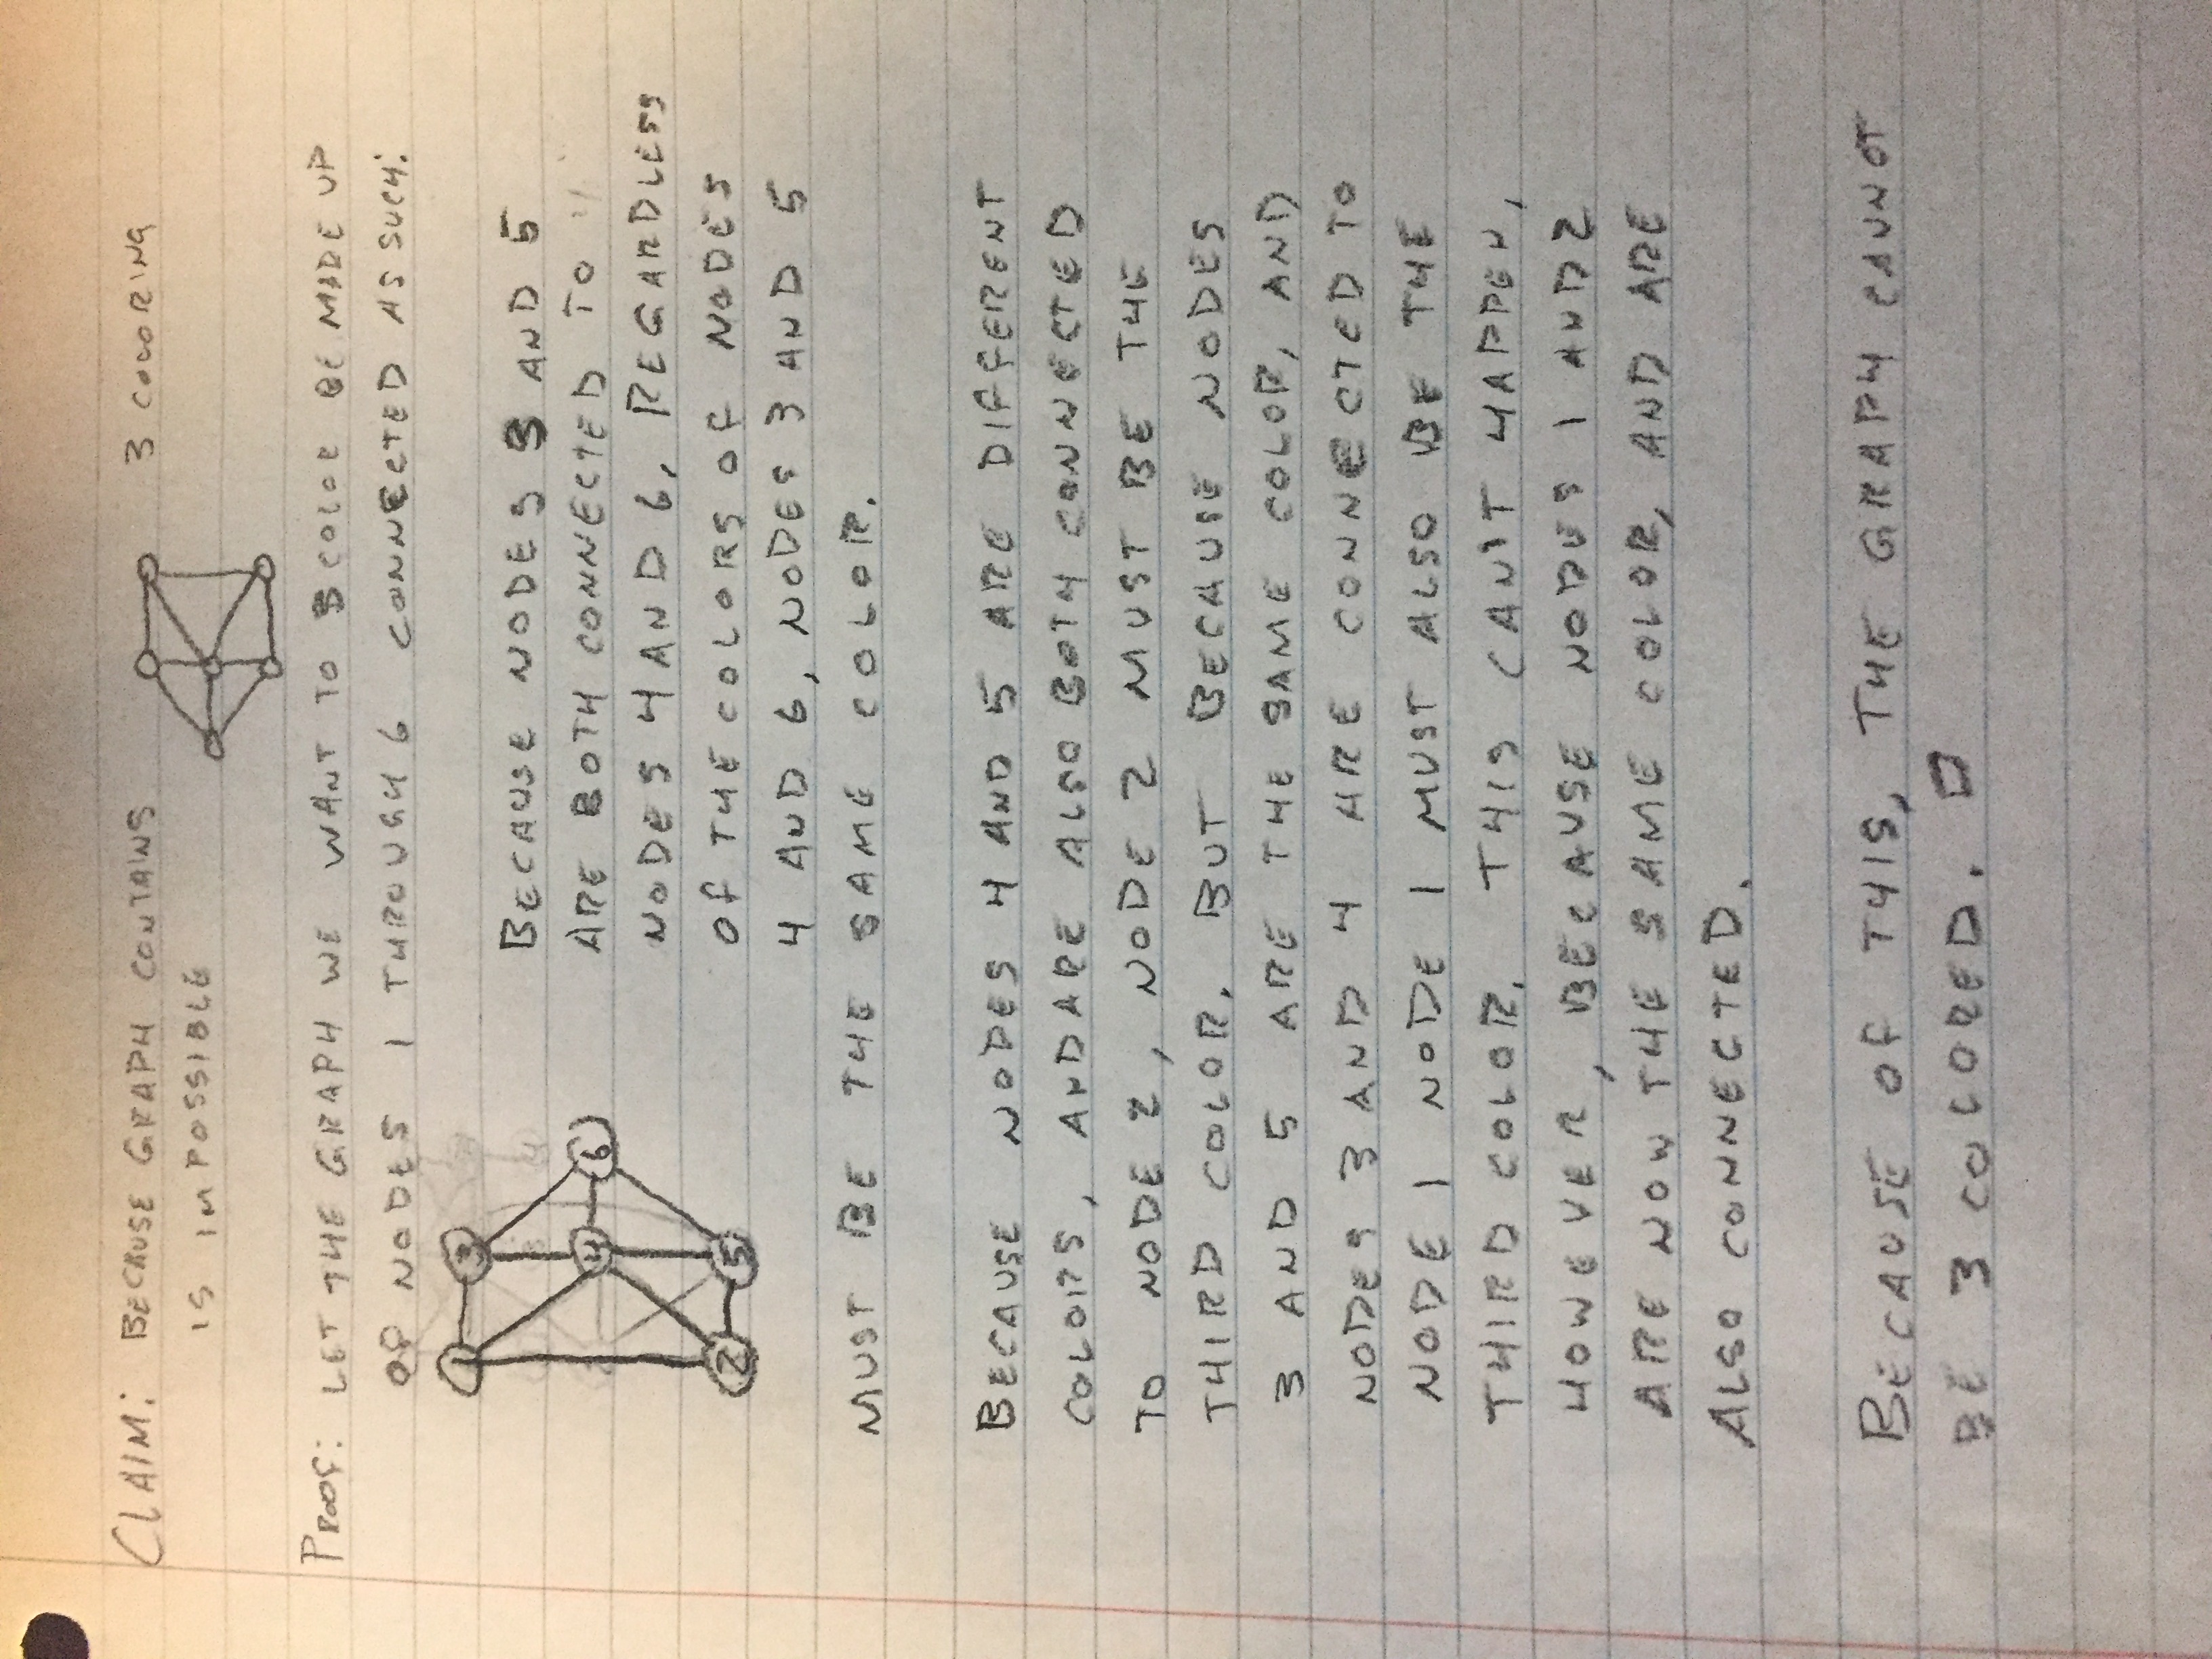 CLAIM: BECAUSE GRAPH CONTAINS 3 COLORING
IS IMPOSSIBLE
PROOF: LET THE GRAPH WE WANT TO 3 COLOR BE MADE UP
OF NODES 1 THROUGH 6 CONNECTED AS SUCH:
1 3
4 6
2 5
BECAUSE NODES 3 AND 5
ARE BOTH CONNECTED TO
NODES 4 AND 6, REGARDLESS
OF THE COLORS OF NODES
4 AND 6, NODES 3 AND 5
MUST BE THE SAME COLOR.
BECAUSE NODES 4 AND 5 ARE DIFFERENT
COLORS, AND ARE ALSO BOTH CONNECTED
TO NODE 2, NODE 2 MUST BE THE
THIRD COLOR. BUT BECAUSE NODES
3 AND 5 ARE THE SAME COLOR, AND
NODES 3 AND 4 ARE CONNECTED TO
NODE 1 NODE 1 MUST ALSO BE THE
THIRD COLOR. THIS CAN'T HAPPEN,
HOWEVER, BECAUSE NODES 1 AND 2
ARE NOW THE SAME COLOR, AND ARE
ALSO CONNECTED.
BECAUSE OF THIS, THE GRAPH CANNOT
BE 3 COLORED. □